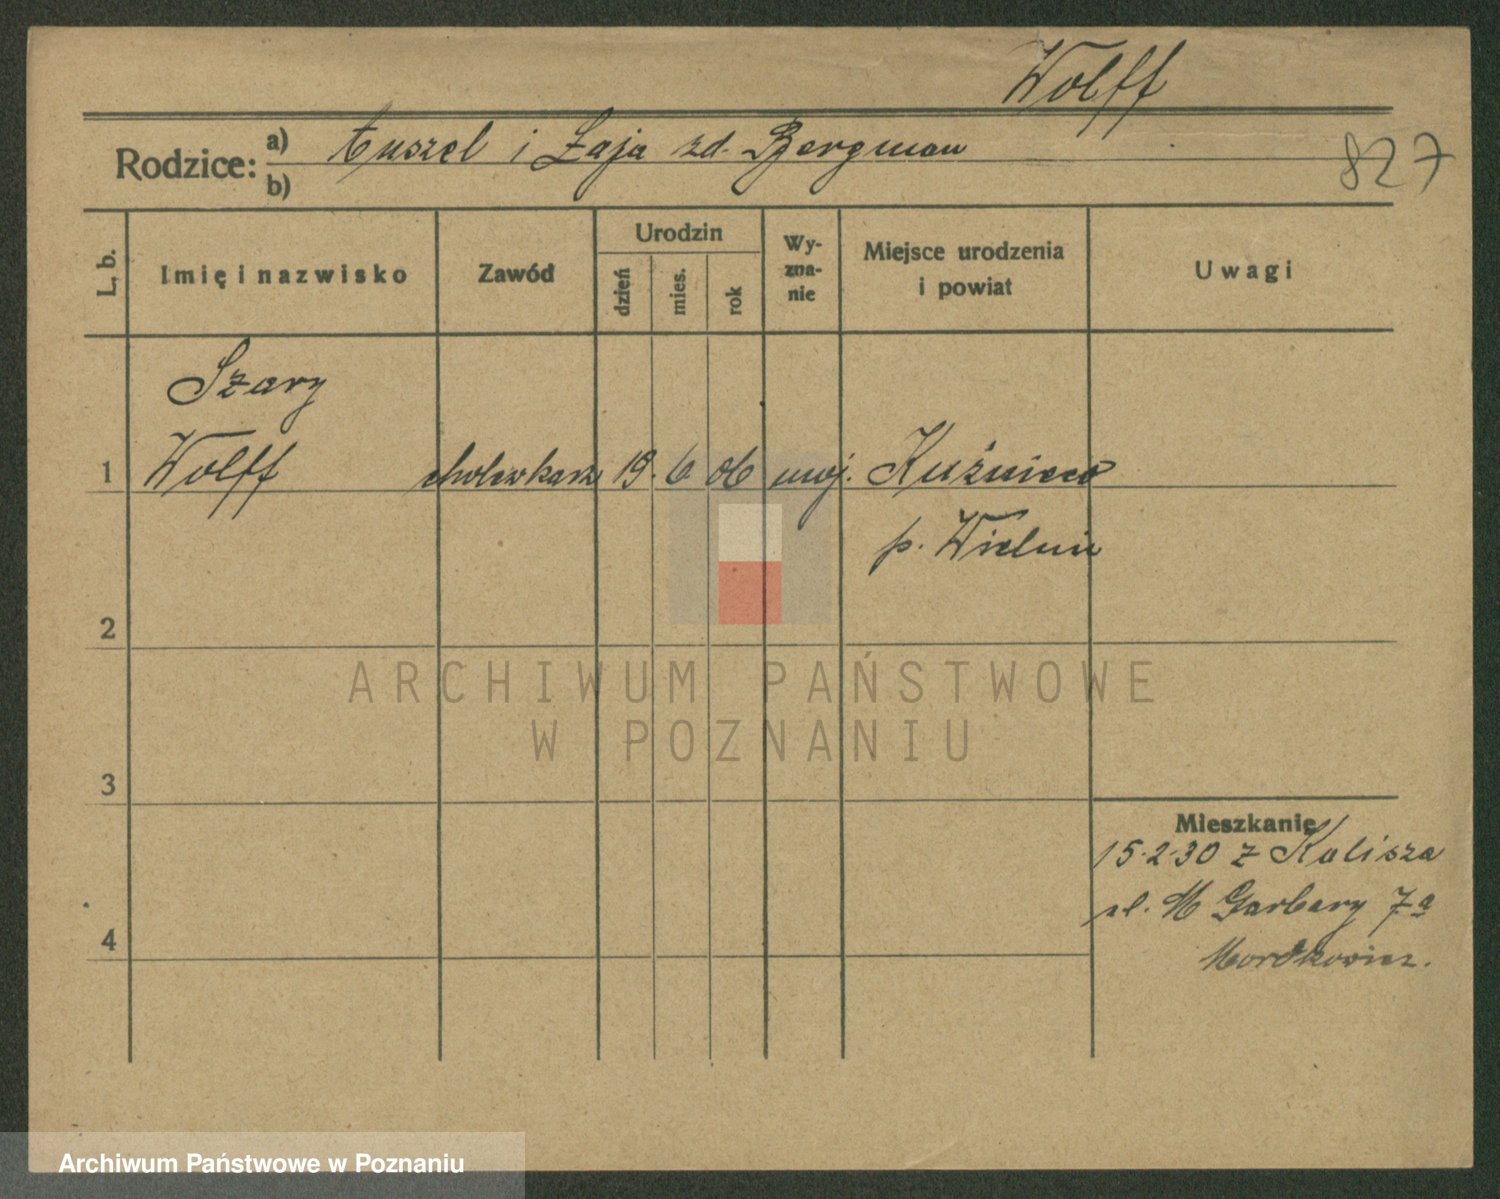 Wolff
Rodzice: a) Auszel i Łaja zd. Bergman
b)
827
L. b.
Imię i nazwisko
Zawód
Urodzin
dzień
mies.
rok
Wy-
zna-
nie
Miejsce urodzenia
i powiat
Uwagi
Szary
1 Wolff cholewkarz 19. 6 06 moj. Kuźnica
p. Wieluń
2
3
4
Mieszkanie
15·2·30 z Kalisza
M Garbary 7a
Mordkowicz.
ARCHIWUM PAŃSTWOWE
W POZNANIU
Archiwum Państwowe w Poznaniu